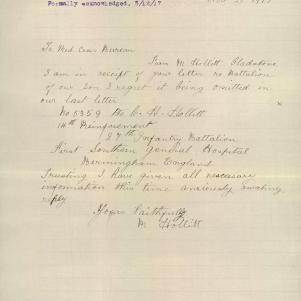 Formally acknowledged, 5/12/17
To Red Cross Bureau
From M Hollitt Gladstone
I am in receipt of your letter re Battalion
of our Son I regret it being omitted in
our last letter
No 5359 Pte C. H. Hollitt
14th Reinforcement
27th Infantry Battalion
First Southern General Hospital
Bermingham England
Trusting I have given all necessary
information this time anxiously awaiting
reply
Yours Faithfully
M Hollitt